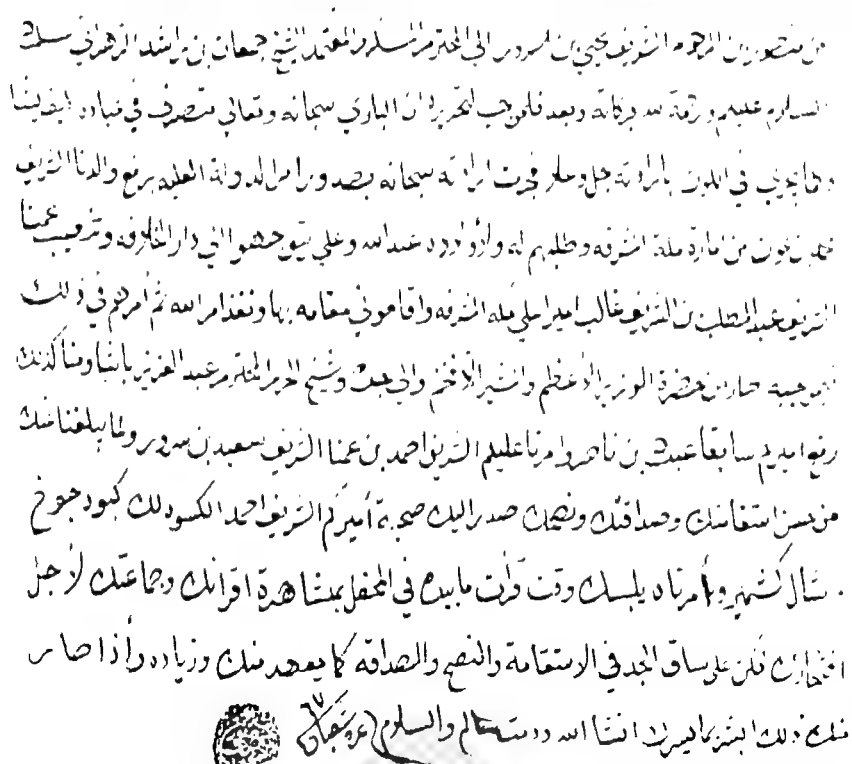 من منصور بن المرحوم الشريف يحيى بن سرور الى المحترم المكرم والمعتمد الشيخ جمعان بن راشد الزهراني سلمك
السلام عليكم ورحمة الله بركاته وبعد فلموجب التحرير ان الباري سبحانه وتعالى متصرف في عباده كيف يشا
وما يجري في الكون بارادته جل وعلا فجرت ارادته سبحانه بصدور امر الدولة العليه برفع والدنا الشريف
محمد بن عون من امارة مكة المشرفه وطلبهم له واولاده عبدالله وعلي يتوجهوا الى دار الخلافه وترتيب عمنا
الشريف عبدالمطلب بن الشريف غالب اميرا على مكه المشرفه واقاموني مقامه بها ونفذ امر الله ثم امرهم في ذلك
بموجبه صار من حضرة الوزير الأعظم والمشير الأفخم والي جده وشيخ الحرم المحترم عبدالعزيز باشا ومنا كذلك
رفع اميركم سابقا عبدالله بن ناصر وامرنا عليكم الشريف احمد بن عمنا الشريف سعيد بن سرور ولما يبلغنا عنك
من حسن استقامتك وصداقتك ونصحك صدر اليك صحبة أميركم الشريف احمد الكسوه لك كبود جوخ
شال كشمير وأمرناه يلبسك وقت قرأت ما بيده في المحفل بمشاهدة اقرانك وجماعتك لأجل
افتخارك فكن على ساق الجد في الاستقامة والنصح والصداقه كما يعهد منك وزياده وأذا صار
منك ذلك ابشر بما يسرك انشا الله ودمت سالم والسلام